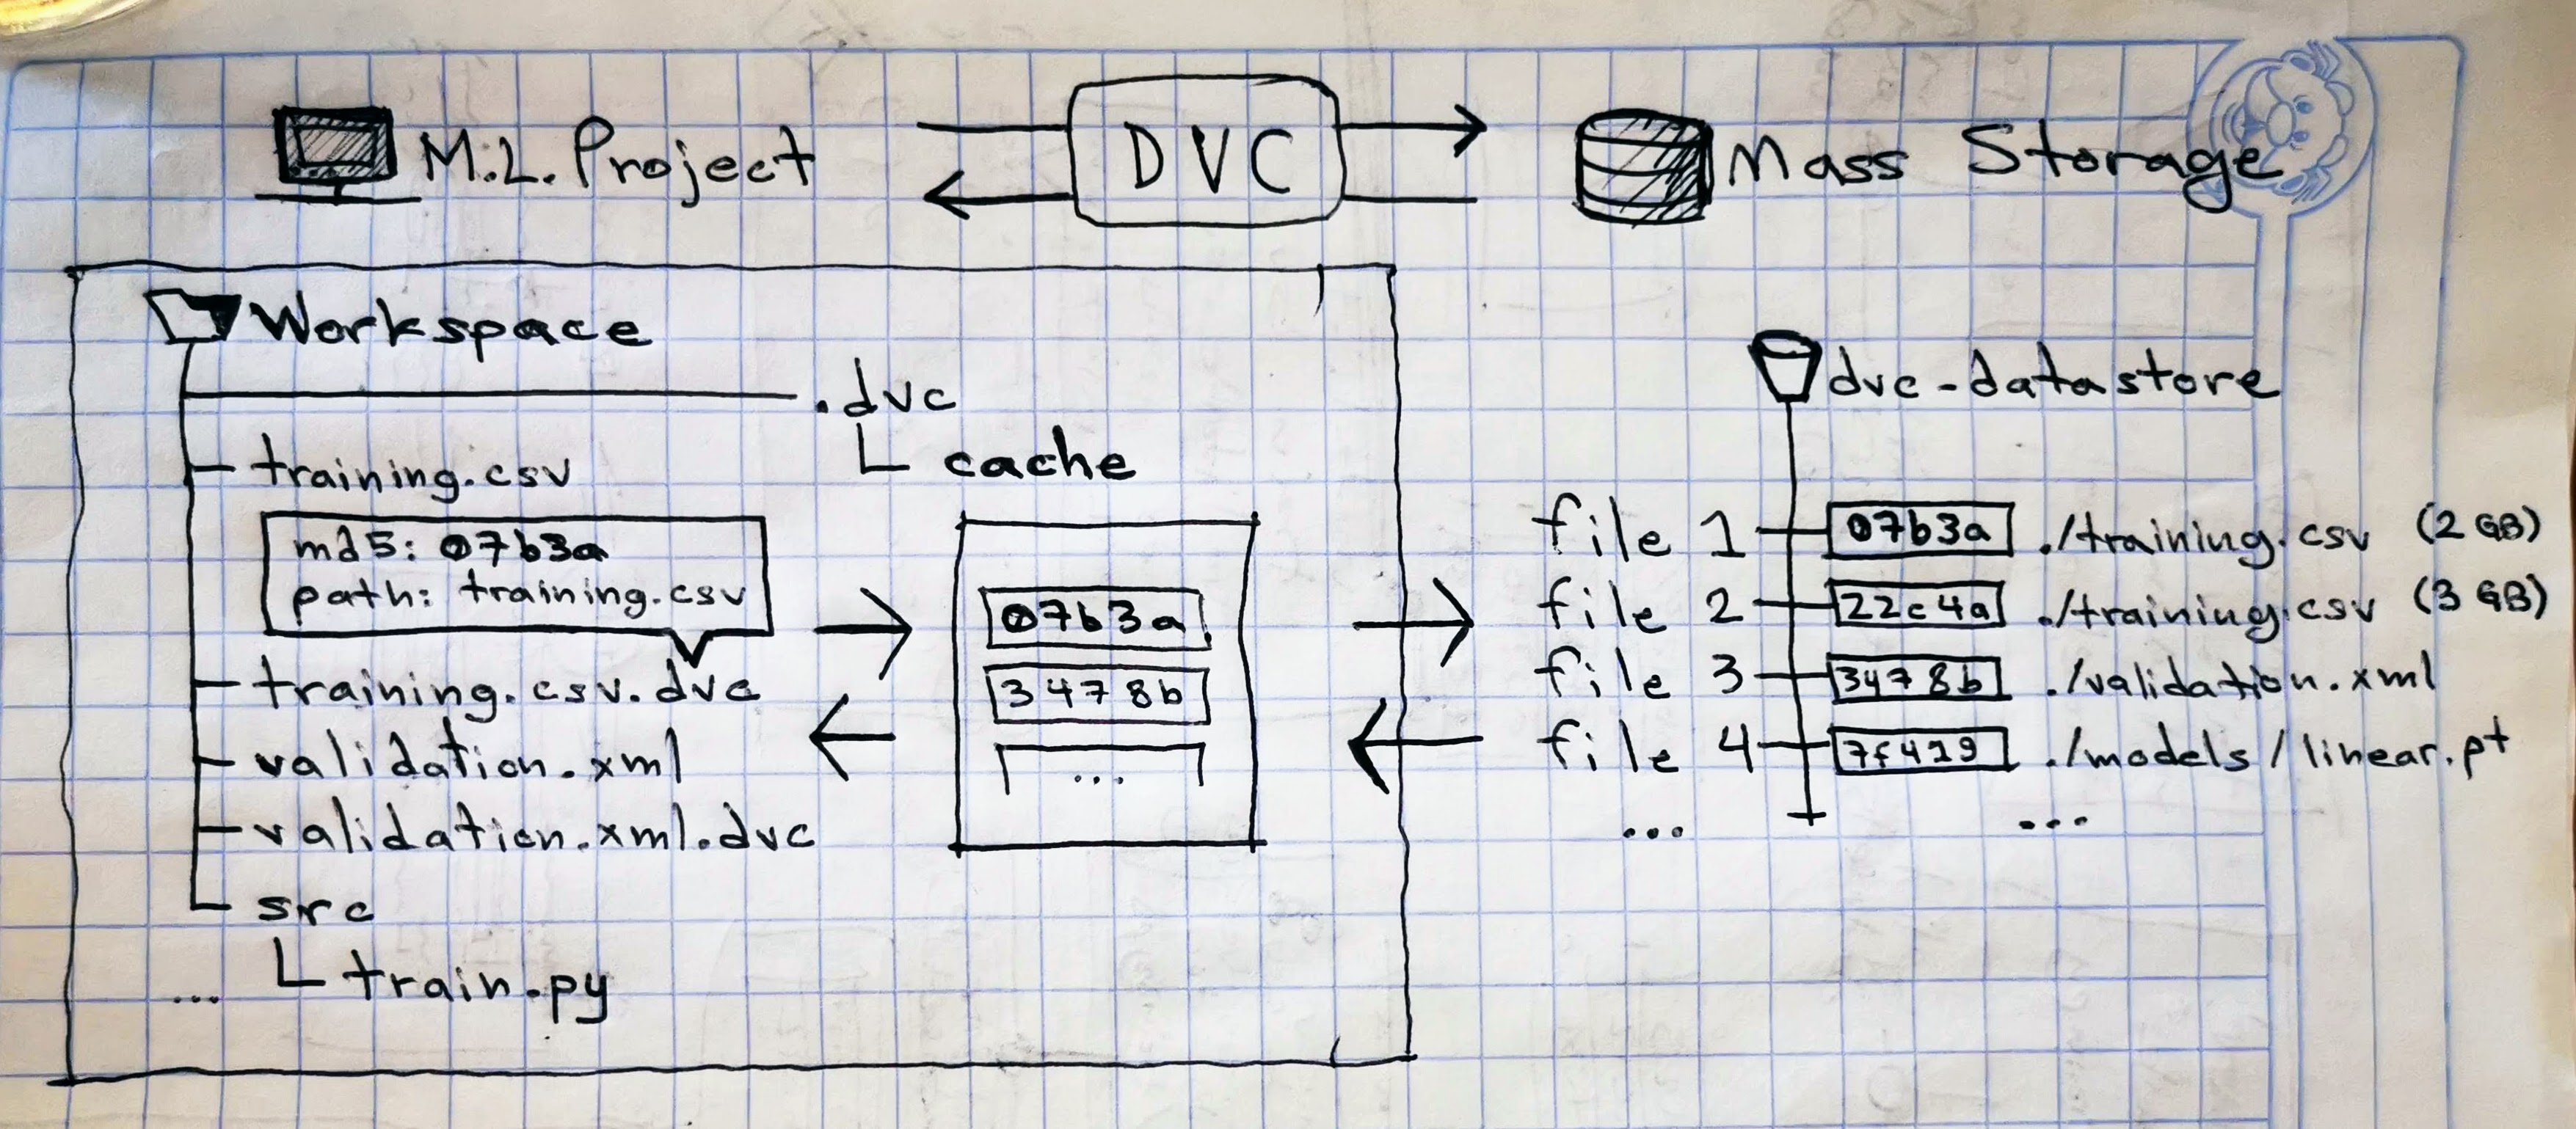 M.L. Project
DVC
Mass Storage
Workspace
.dvc
cache
training.csv
md5: 07b3a
path: training.csv
training.csv.dvc
validation.xml
validation.xml.dvc
src
train.py
...
07b3a
3478b
...
dvc-datastore
file 1 07b3a ./training.csv (2 GB)
file 2 22c4a ./training.csv (3 GB)
file 3 3478b ./validation.xml
file 4 7f419 ./models/linear.pt
... ...